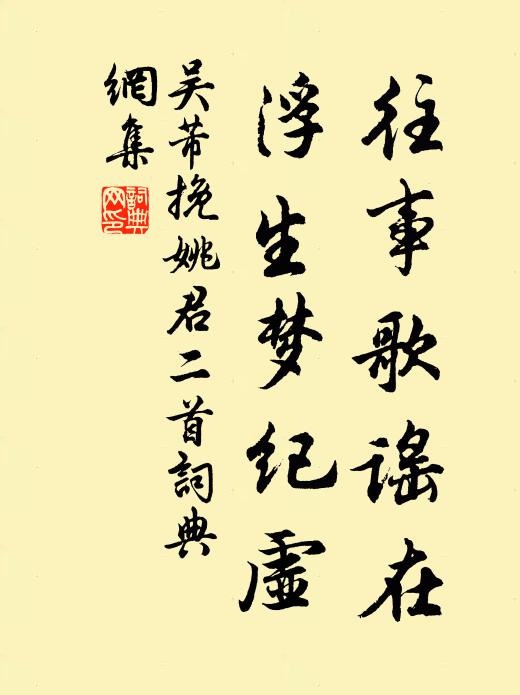 往事歌谣在
浮生梦纪虚
吴芾挽姚君二首詞典
網集
詞典网印